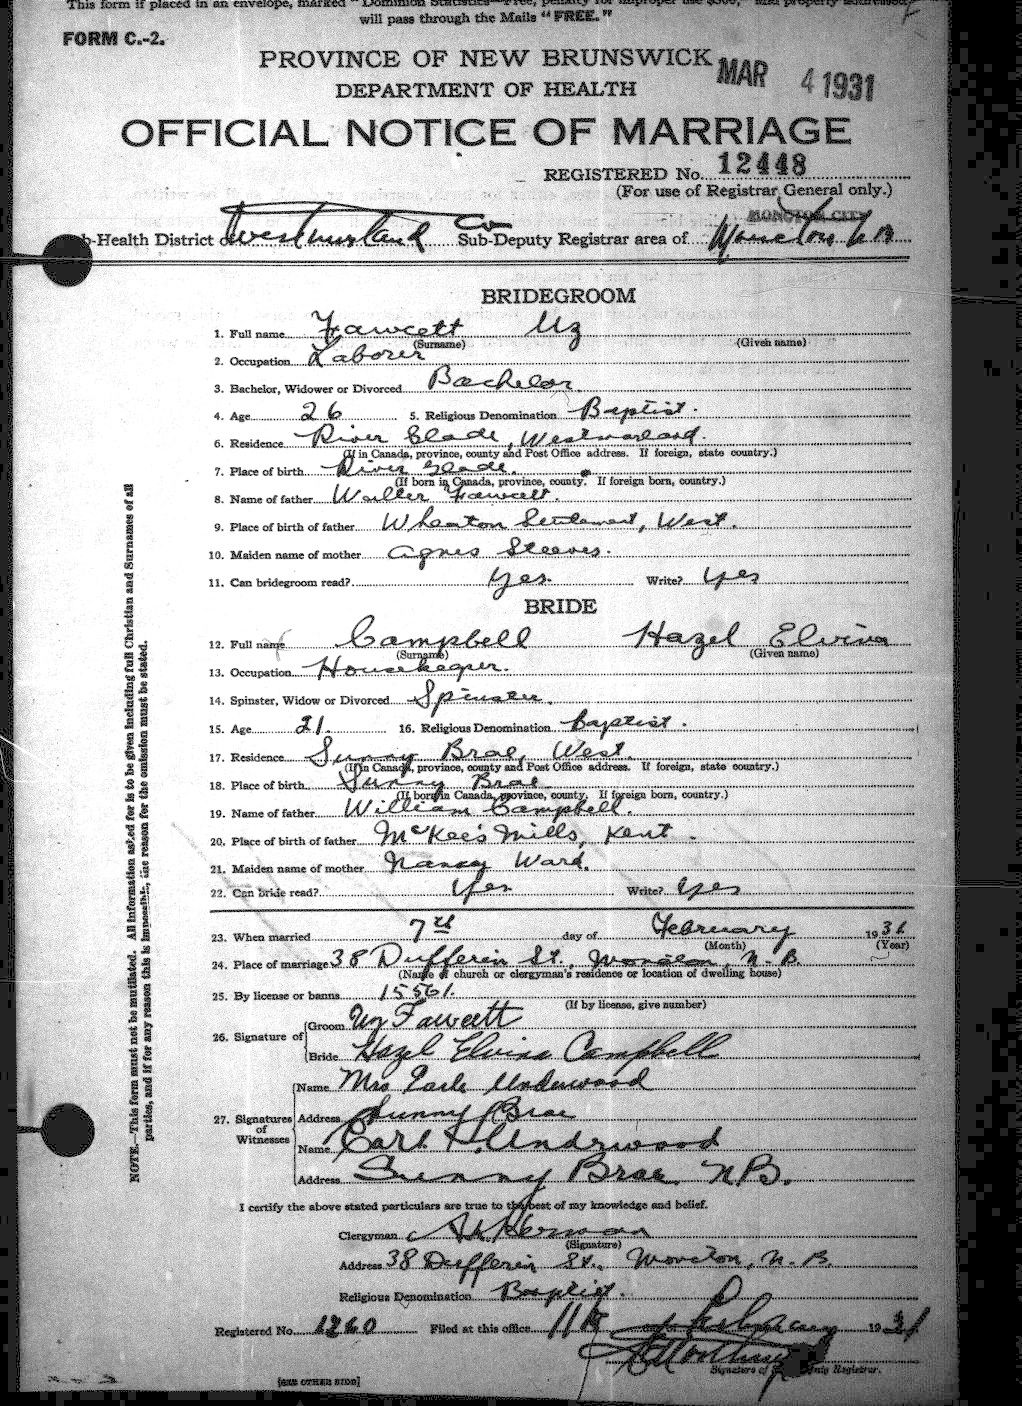 This form if placed in an envelope, marked "Dominion Statistics—Free, penalty for improper use $300," and property addressed
will pass through the Mails "FREE."
FORM C.-2.
PROVINCE OF NEW BRUNSWICK
MAR 4 1931
DEPARTMENT OF HEALTH
OFFICIAL NOTICE OF MARRIAGE
REGISTERED No. 12448
(For use of Registrar General only.)
MONCTON CITY
b-Health District of Westmorland Co Sub-Deputy Registrar area of Moncton N B
BRIDEGROOM
1. Full name Fawcett Uz
(Surname) (Given name)
2. Occupation Laborer
3. Bachelor, Widower or Divorced Bachelor
4. Age 26 5. Religious Denomination Baptist.
6. Residence River Glade, Westmorland.
(If in Canada, province, county and Post Office address. If foreign, state country.)
7. Place of birth River Glade.
(If born in Canada, province, county. If foreign born, country.)
8. Name of father Walter Fawcett.
9. Place of birth of father Wheaton Settlement, West.
10. Maiden name of mother Agnes Steeves.
11. Can bridegroom read? Yes. Write? Yes
BRIDE
12. Full name Campbell Hazel Elvina
(Surname) (Given name)
13. Occupation Housekeeper.
14. Spinster, Widow or Divorced Spinster.
15. Age 21. 16. Religious Denomination Baptist.
17. Residence Sunny Brae, West.
(If in Canada, province, county and Post Office address. If foreign, state country.)
18. Place of birth Sunny Brae
(If born in Canada, province, county. If foreign born, country.)
19. Name of father William Campbell.
20. Place of birth of father McKee's Mills, Kent.
21. Maiden name of mother Nancy Ward.
22. Can bride read? Yes Write? Yes
23. When married 7th day of February 1931
(Month) (Year)
24. Place of marriage 38 Dufferin St., Moncton, N. B.
(Name of church or clergyman's residence or location of dwelling house)
25. By license or banns 15561.
(If by license, give number)
26. Signature of Groom Uz Fawcett
Bride Hazel Elvina Campbell
27. Signatures of Witnesses
Name Mrs Earle Underwood
Address Sunny Brae
Name Earl Underwood
Address Sunny Brae N.B.
I certify the above stated particulars are true to the best of my knowledge and belief.
Clergyman
(Signature)
Address 38 Dufferin St., Moncton, N. B.
Religious Denomination Baptist.
Registered No. 1260 Filed at this office 11th February 1931
Signature of Deputy Registrar.
[SEE OTHER SIDE]
NOTE.—This form must not be mutilated. All information asked for is to be given including full Christian and Surnames of all
parties, and if for any reason this is impossible, the reason for the omission must be stated.